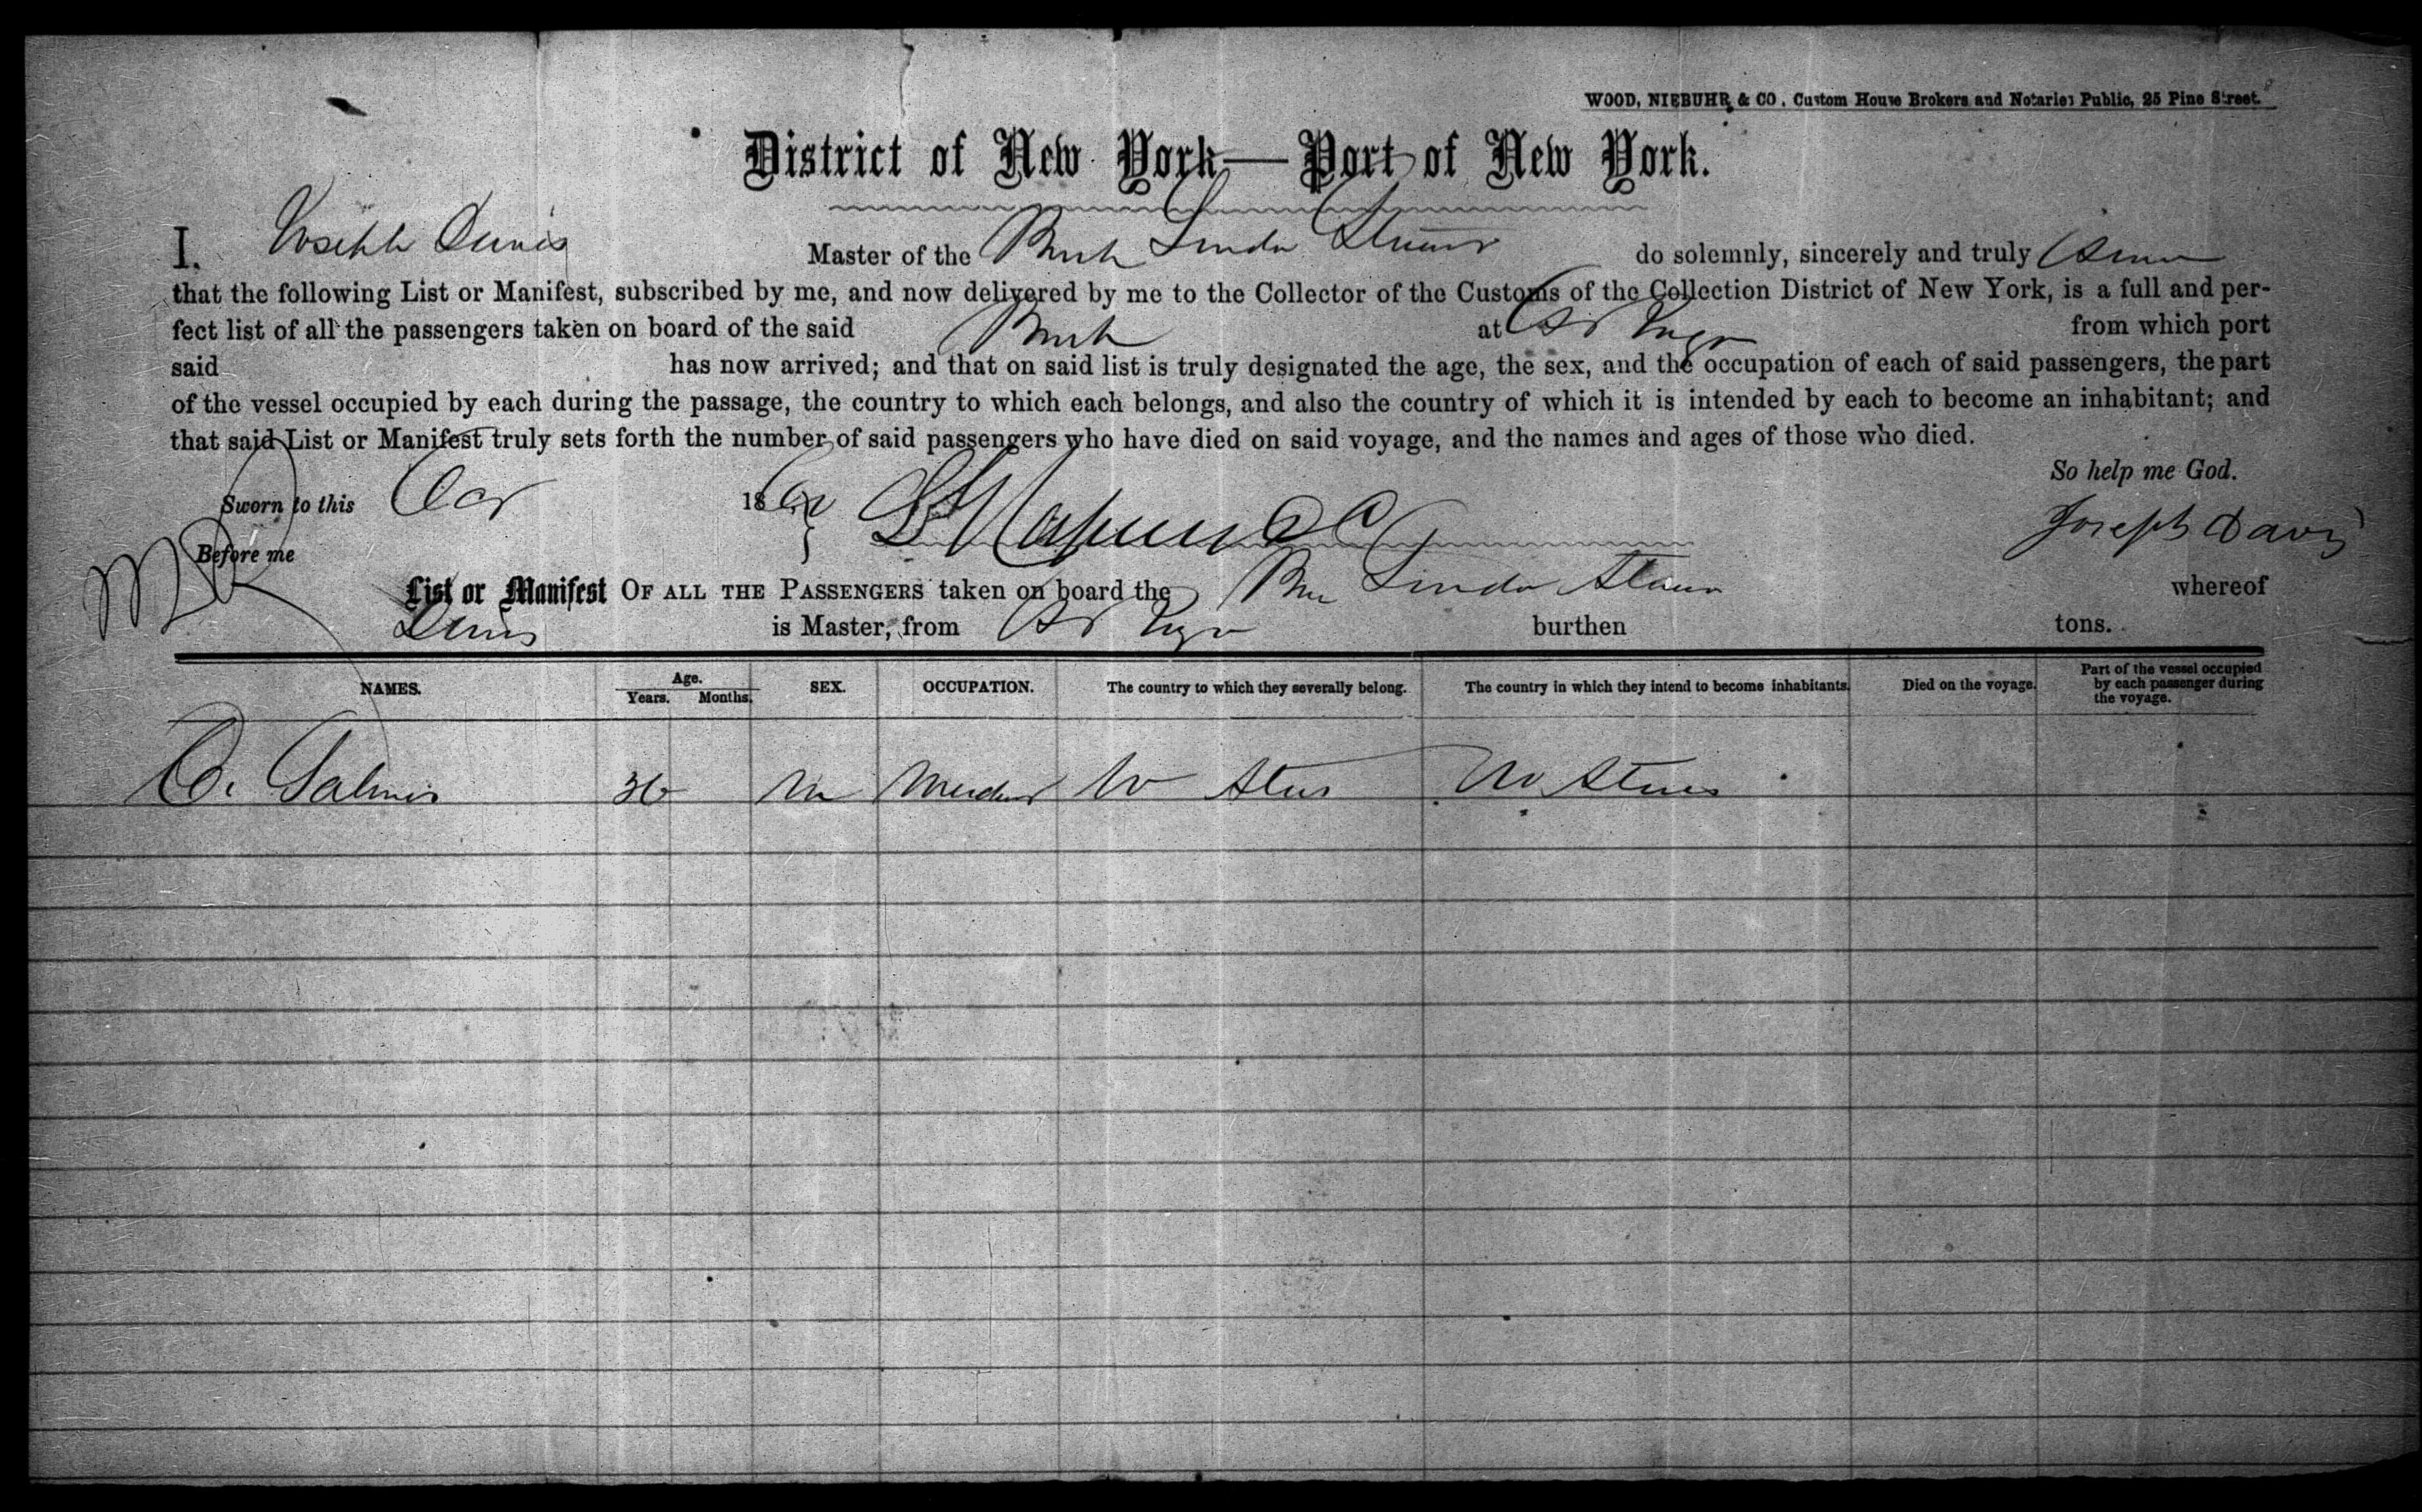 WOOD, NIEBUHR & CO. Custom House Brokers and Notaries Public, 25 Pine Street.
District of New York—Port of New York.
I, Joseph Davis Master of the Linda do solemnly, sincerely and truly
that the following List or Manifest, subscribed by me, and now delivered by me to the Collector of the Customs of the Collection District of New York, is a full and per-
fect list of all the passengers taken on board of the said at from which port
said has now arrived; and that on said list is truly designated the age, the sex, and the occupation of each of said passengers, the part
of the vessel occupied by each during the passage, the country to which each belongs, and also the country of which it is intended by each to become an inhabitant; and
that said List or Manifest truly sets forth the number of said passengers who have died on said voyage, and the names and ages of those who died.
So help me God.
Sworn to this 18
Joseph Davis
Before me
List or Manifest OF ALL THE PASSENGERS taken on board the Linda whereof
Davis is Master, from burthen tons.
NAMES. Age. Years. Months. SEX. OCCUPATION. The country to which they severally belong. The country in which they intend to become inhabitants. Died on the voyage. Part of the vessel occupied by each passenger during the voyage.
36 M